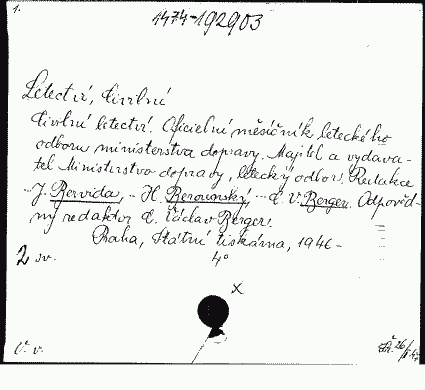 1.
1474-192903
Letectví, Civilní
Civilní letectví. Oficielní měsíčník leteckého
odboru ministerstva dopravy. Majitel a vydava-
tel Ministerstvo dopravy, letecký odbor. Redakce
J. Bervida, H. Berounský, V. Berger. Odpověd-
ný redaktor Václav Berger.
Praha, Státní tiskárna, 1946-
2 sv. 4°
x
Č. v.